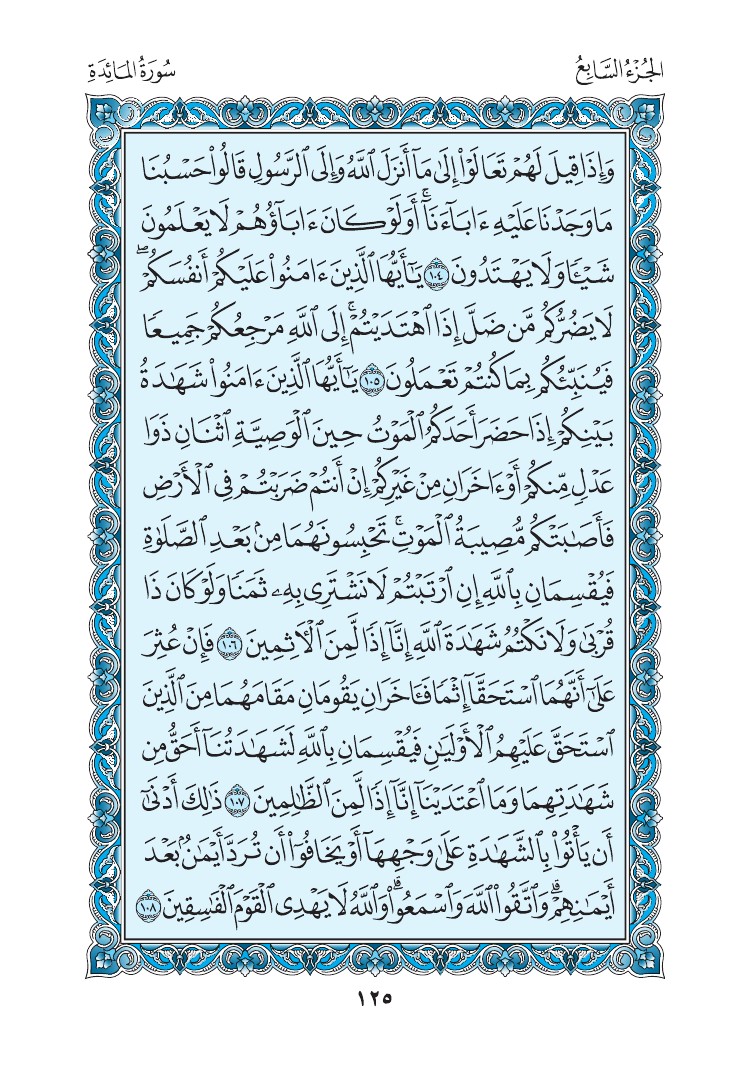 الجُزْءُ السَّابِعُ
سُورَةُ المَائِدَةِ
وَإِذَا قِيلَ لَهُمْ تَعَالَوْاْ إِلَىٰ مَآ أَنزَلَ ٱللَّهُ وَإِلَى ٱلرَّسُولِ قَالُواْ حَسْبُنَا
مَا وَجَدْنَا عَلَيْهِ ءَابَآءَنَآۚ أَوَلَوْ كَانَ ءَابَآؤُهُمْ لَا يَعْلَمُونَ
شَيْـًٔا وَلَا يَهْتَدُونَ ١٠٤ يَـٰٓأَيُّهَا ٱلَّذِينَ ءَامَنُواْ عَلَيْكُمْ أَنفُسَكُمْۖ
لَا يَضُرُّكُم مَّن ضَلَّ إِذَا ٱهْتَدَيْتُمْۚ إِلَى ٱللَّهِ مَرْجِعُكُمْ جَمِيعًا
فَيُنَبِّئُكُم بِمَا كُنتُمْ تَعْمَلُونَ ١٠٥ يَـٰٓأَيُّهَا ٱلَّذِينَ ءَامَنُواْ شَهَـٰدَةُ
بَيْنِكُمْ إِذَا حَضَرَ أَحَدَكُمُ ٱلْمَوْتُ حِينَ ٱلْوَصِيَّةِ ٱثْنَانِ ذَوَا
عَدْلٍ مِّنكُمْ أَوْ ءَاخَرَانِ مِنْ غَيْرِكُمْ إِنْ أَنتُمْ ضَرَبْتُمْ فِى ٱلْأَرْضِ
فَأَصَـٰبَتْكُم مُّصِيبَةُ ٱلْمَوْتِۚ تَحْبِسُونَهُمَا مِنۢ بَعْدِ ٱلصَّلَوٰةِ
فَيُقْسِمَانِ بِٱللَّهِ إِنِ ٱرْتَبْتُمْ لَا نَشْتَرِى بِهِۦ ثَمَنًا وَلَوْ كَانَ ذَا
قُرْبَىٰ وَلَا نَكْتُمُ شَهَـٰدَةَ ٱللَّهِ إِنَّآ إِذًا لَّمِنَ ٱلْـَٔاثِمِينَ ١٠٦ فَإِنْ عُثِرَ
عَلَىٰٓ أَنَّهُمَا ٱسْتَحَقَّآ إِثْمًا فَـَٔاخَرَانِ يَقُومَانِ مَقَامَهُمَا مِنَ ٱلَّذِينَ
ٱسْتَحَقَّ عَلَيْهِمُ ٱلْأَوْلَيَـٰنِ فَيُقْسِمَانِ بِٱللَّهِ لَشَهَـٰدَتُنَآ أَحَقُّ مِن
شَهَـٰدَتِهِمَا وَمَا ٱعْتَدَيْنَآ إِنَّآ إِذًا لَّمِنَ ٱلظَّـٰلِمِينَ ١٠٧ ذَٰلِكَ أَدْنَىٰٓ
أَن يَأْتُواْ بِٱلشَّهَـٰدَةِ عَلَىٰ وَجْهِهَآ أَوْ يَخَافُوٓاْ أَن تُرَدَّ أَيْمَـٰنٌۢ بَعْدَ
أَيْمَـٰنِهِمْۗ وَٱتَّقُواْ ٱللَّهَ وَٱسْمَعُواْۗ وَٱللَّهُ لَا يَهْدِى ٱلْقَوْمَ ٱلْفَـٰسِقِينَ ١٠٨
١٢٥